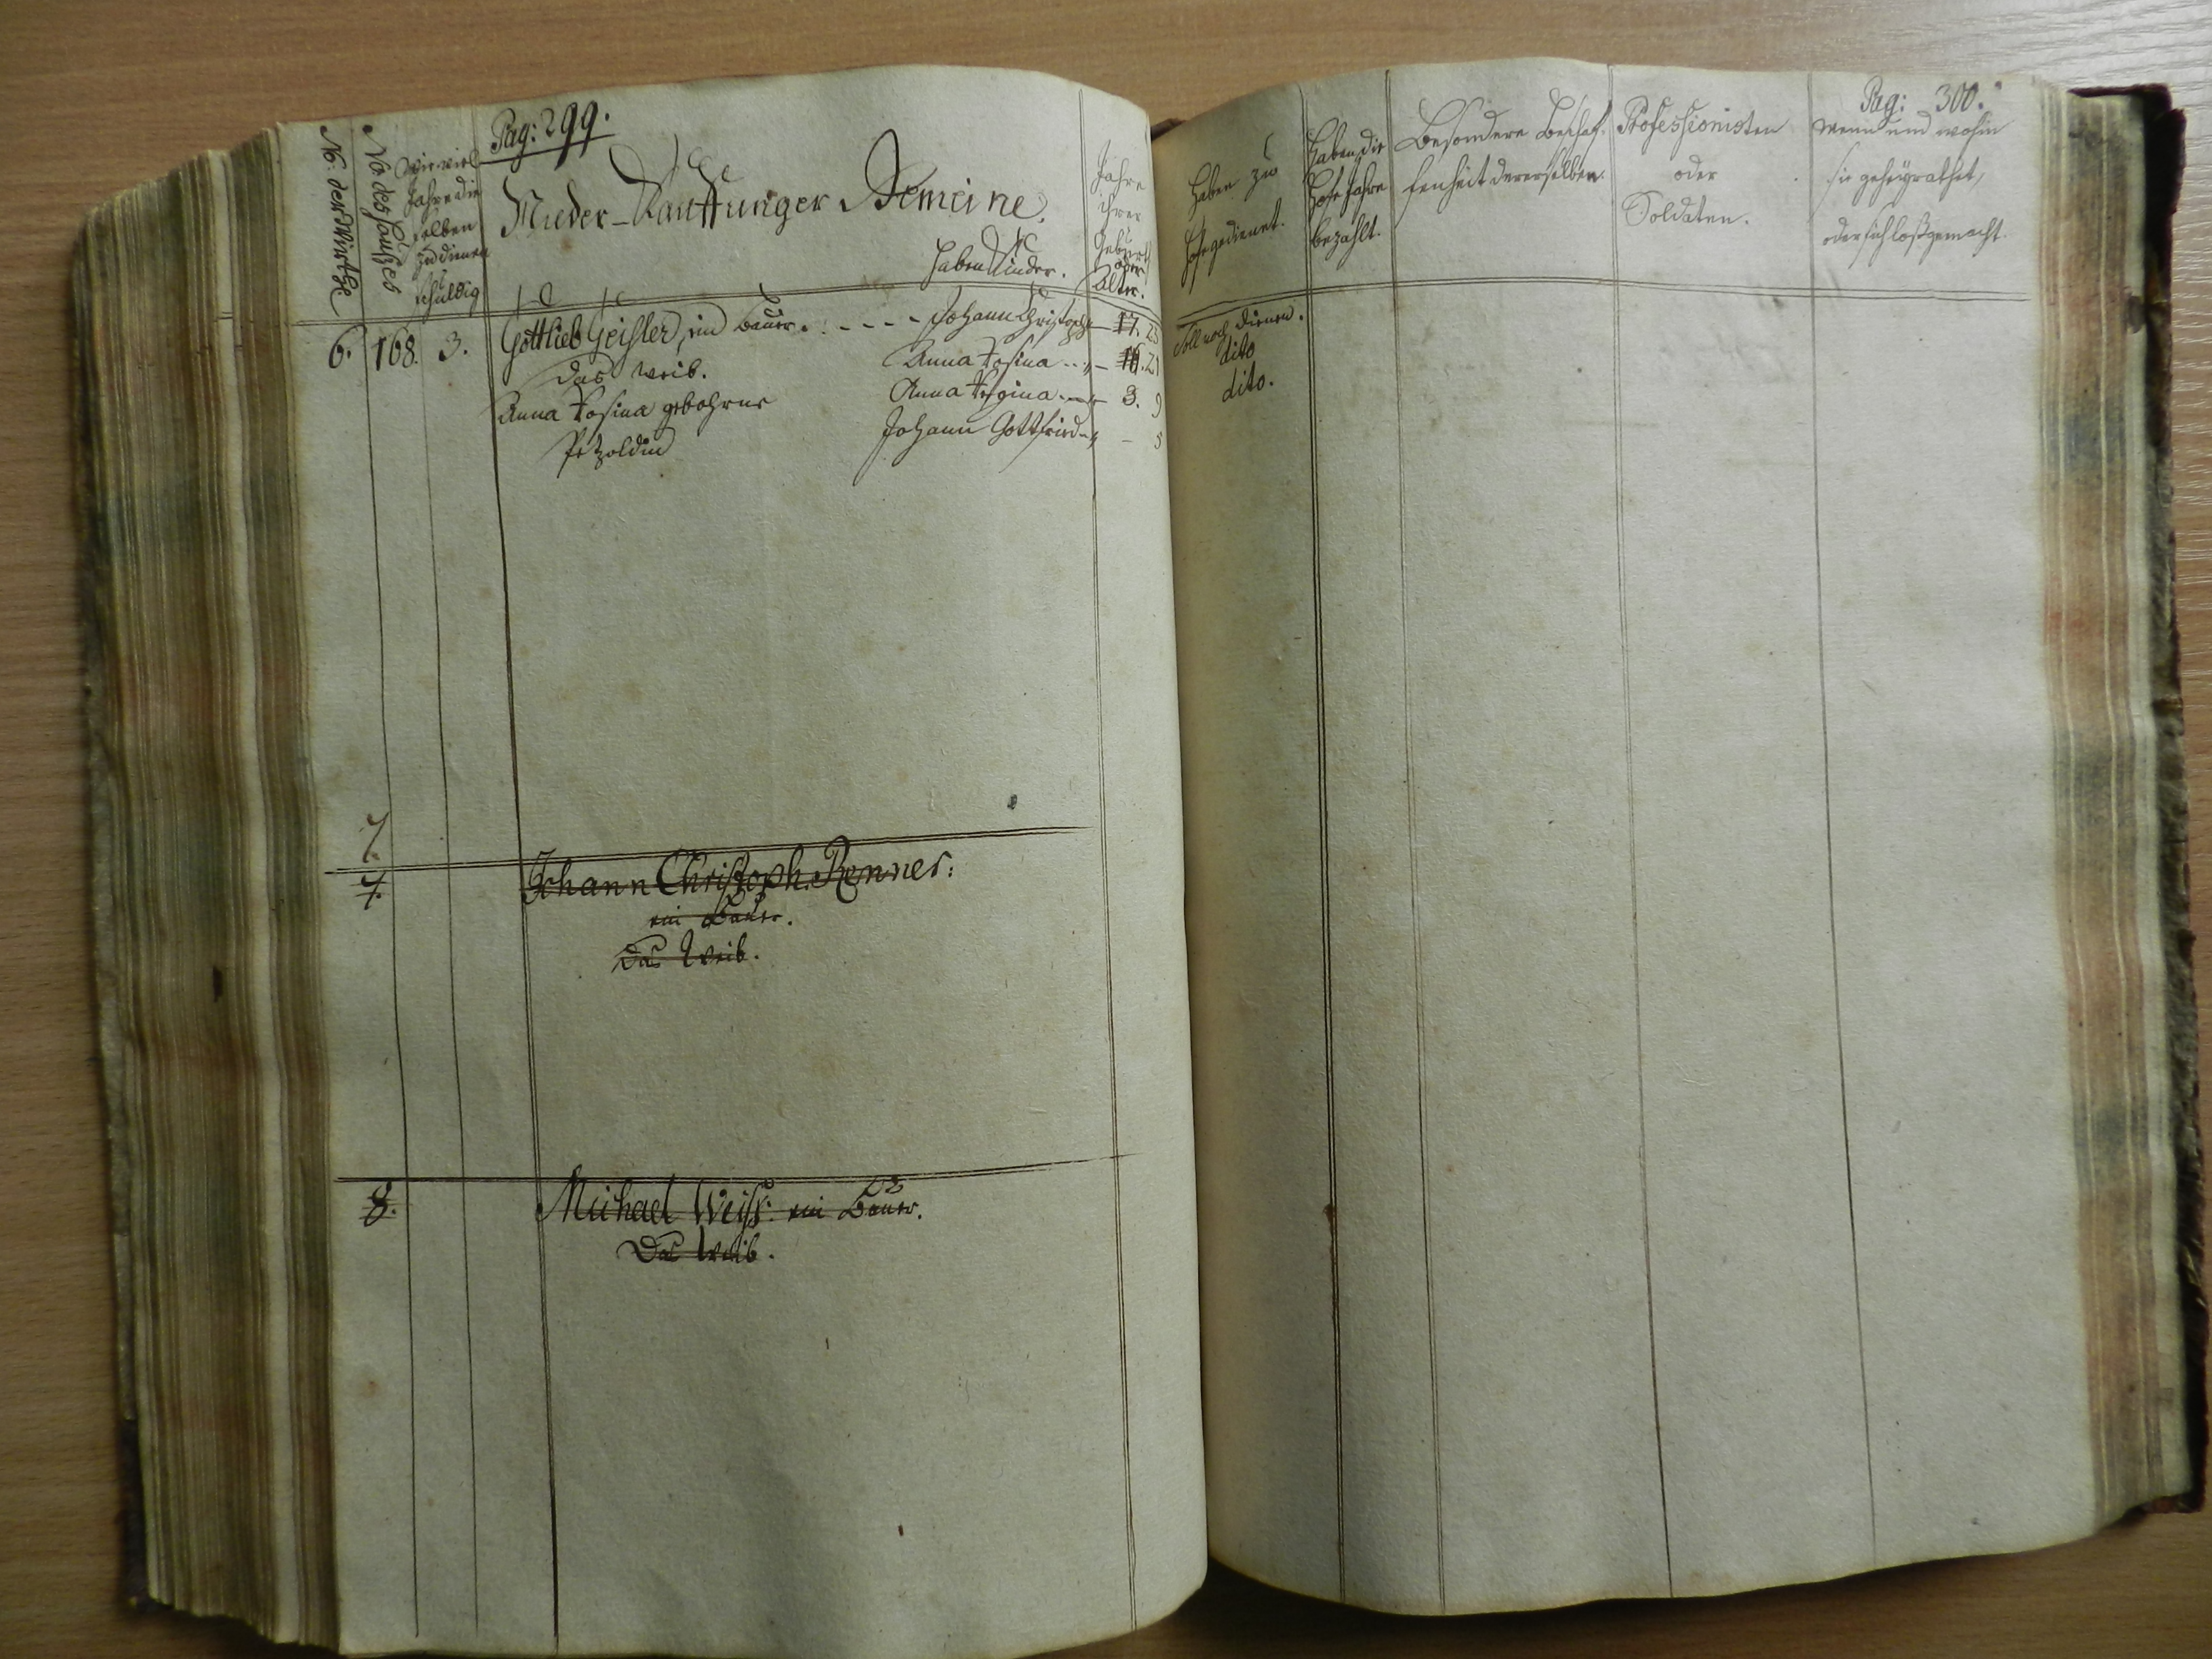 Pag: 299.
No: der Wirthe
No: des Hauses
Wie viel
Jahre die
selben
zu dienen
schuldig
Nieder-Kauffunger Gemeine.
haben Kinder.
Jahre
ihrer
Geburth
oder
Alter.
6. 168. 3. Gottlieb Geisler, ein Bauer. - - - - Johann Christoph - 17. 23
das Weib. Anna Rosina - 21
Anna Rosina gebohrne Anna Regina - 3. 9
Petzoldin Johann Gottfried - 5
7.
7. Johann Christoph Renner:
ein Bauer.
Das Weib.
8. Michael Weiß: ein Bauer.
Das Weib.
Pag: 300.
haben zu
Hofe gedienet.
haben die
Hofe Jahre
bezahlt.
Besondere Beschaf-
fenheit dererselben.
Professionisten
oder
Soldaten.
wenn und wohin
sie geheyrathet,
oder sich loßgemacht.
Soll noch dienen.
dito
dito.